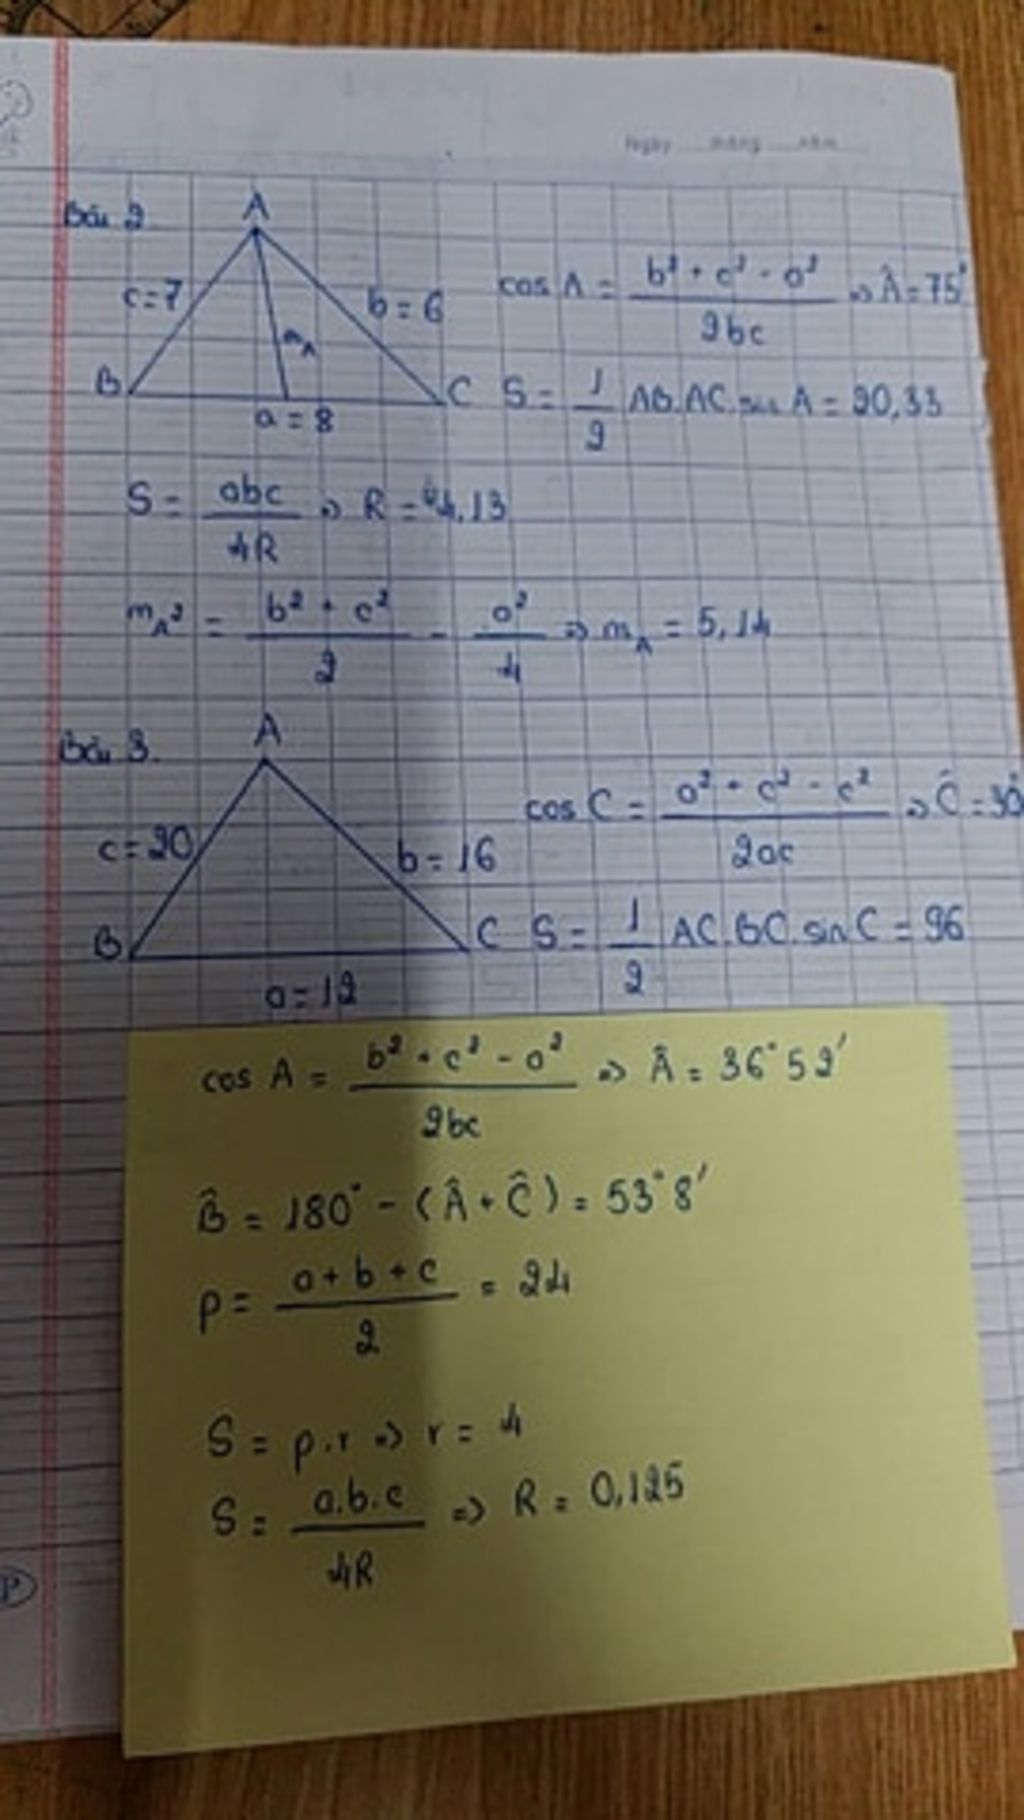 Ngày tháng năm
Bài 2
A
c = 7
b = 6
m_A
B
C
a = 8
cos A = (b² + c² - a²) / 2bc => Â = 75°
S = 1/2 AB.AC.sin A = 20,33
S = abc / 4R => R = 4,13
m_A² = (b² + c²) / 2 - a² / 4 => m_A = 5,14
Bài 3.
A
c = 20
b = 16
B
C
a = 12
cos C = (a² + c² - c²) / 2ac => Ĉ = 90
S = 1/2 AC.BC.sin C = 96
cos A = (b² + c² - a²) / 2bc => Â = 36°52'
B̂ = 180° - (Â + Ĉ) = 53°8'
p = (a + b + c) / 2 = 24
S = p.r => r = 4
S = a.b.c / 4R => R = 0,125